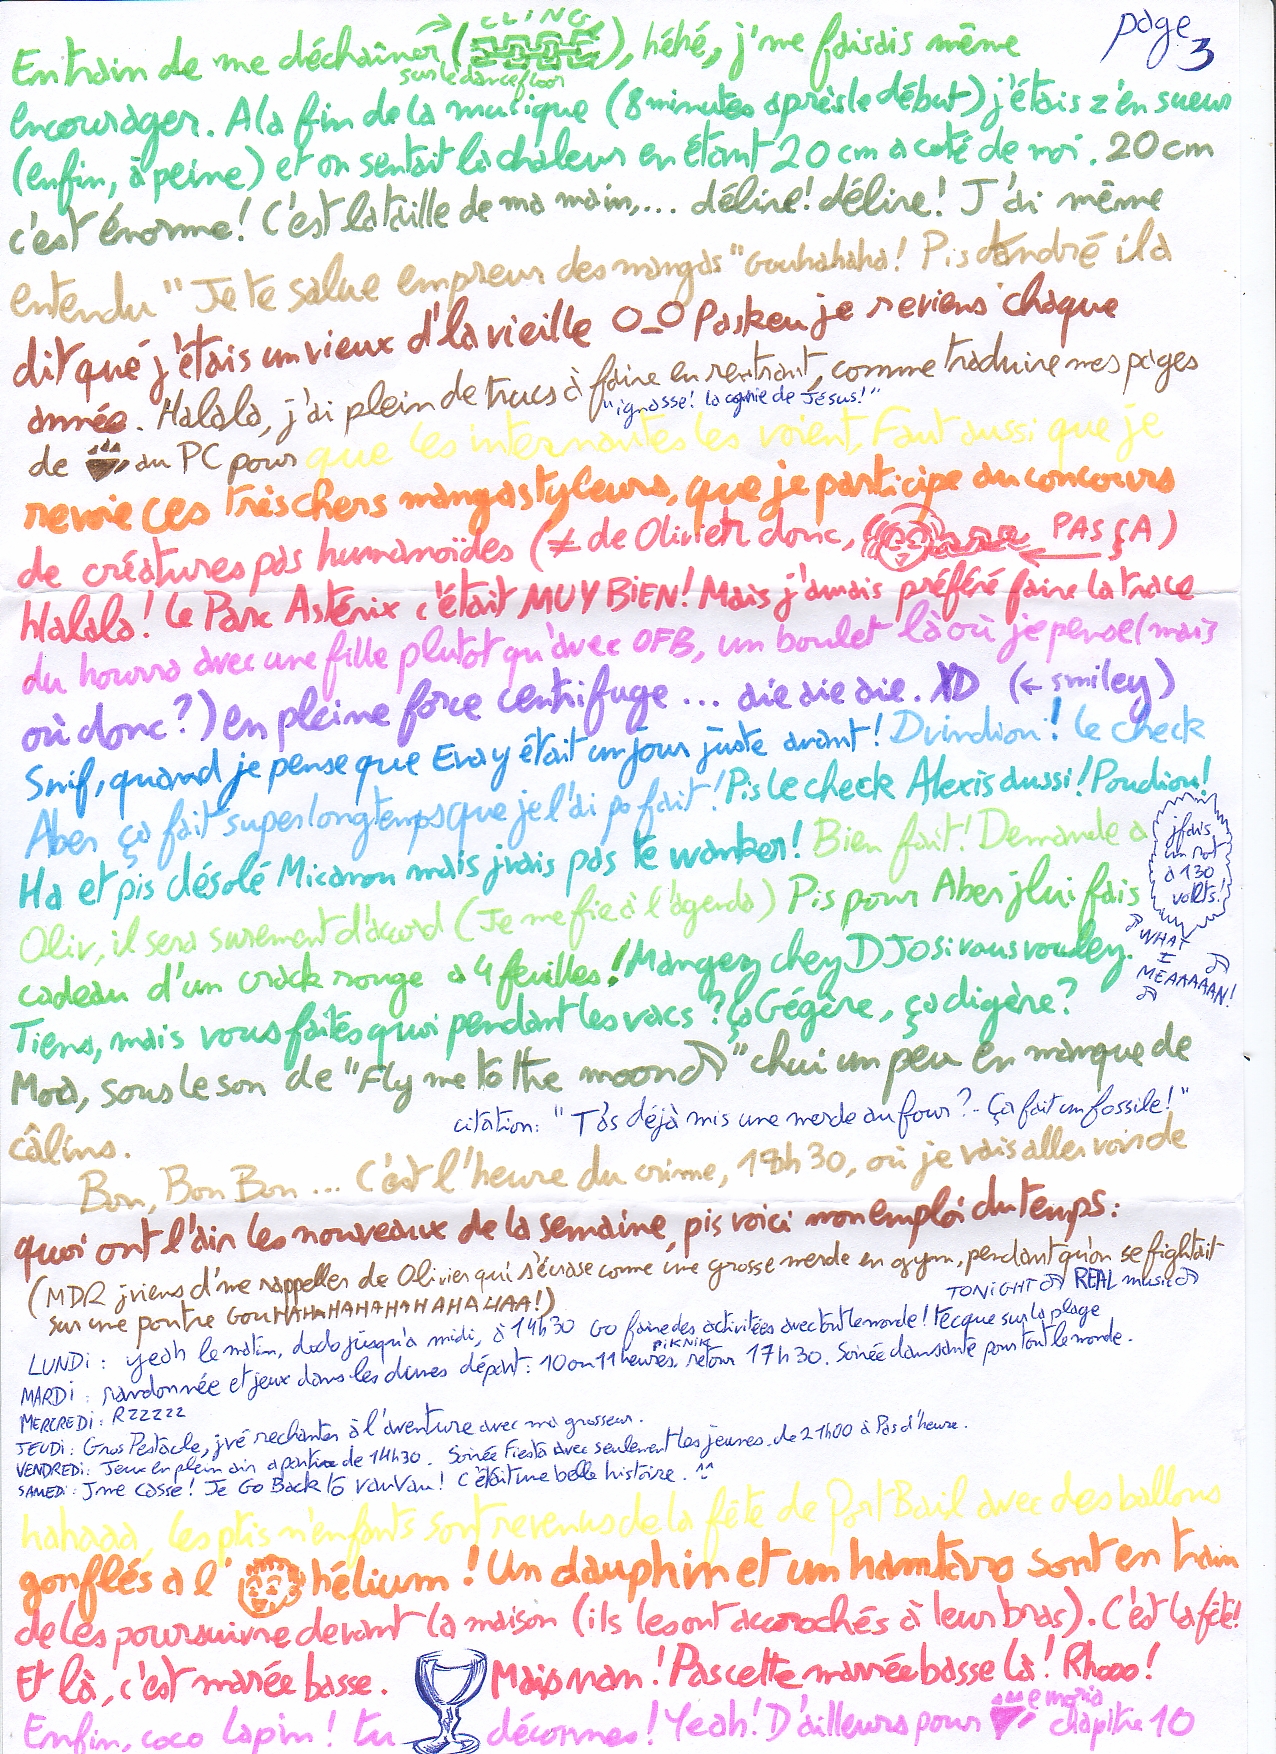 page 3
CLING
En train de me déchaîner (), héhé, j'me faisais même
sur le dancefloor
encourager. A la fin de la musique (8 minutes après le début) j'étais z'en sueur
(enfin, à peine) et on sentait la chaleur en étant 20 cm a coté de moi. 20 cm
c'est énorme! C'est la taille de ma main,... délire! délire! J'ai même
entendu "Je te salue empreur des mangas" Gouhahaha! Pis André il a
dit que j'étais un vieux d'la vieille O_O Paskeu je reviens chaque
année. Halala, j'ai plein de trucs à faire en rentrant, comme traduire mes pages
"ignasse! la copie de Jésus!"
de au PC pour que les internautes les voient, Faut aussi que je
revoie ces très chers mangastyleurs, que je participe au concours
de créatures pas humanoïdes (≠ de Olivier donc, PAS ÇA)
Halala! Le Parc Astérix c'était MUY BIEN! Mais j'aurais préféré faire la trace
du hourra avec une fille plutot qu'avec OFB, un boulet là où je pense (mais
où donc?) en pleine force centrifuge... aïe aïe aïe. XD (← smiley)
Snif, quand je pense que Evay était un jour juste avant! Duindiou! Le check
Aber ça fait super longtemps que je l'ai po fait! Pis le check Alexis aussi! Poudiou!
Ha et pis désolé Micanon mais jvais pas te wanker! Bien fait! Demande a
jfais un rot à 130 volts!
Oliv, il sera surement d'accord (Je me fie à l'agenda) Pis pour Aber jlui fais
WHAT I MEAAAAAN!
cadeau d'un crack rouge a 4 feuilles! Mangez chez DJOSi vous voulez.
Tiens, mais vous faites quoi pendant les vacs? ça Gégère, ça digère?
Moa, sous le son de "Fly me to the moon" chui un peu en manque de
citation: "T'as déjà mis une merde au four? - Ça fait un fossile!"
câlins.
Bon, Bon Bon... C'est l'heure du crime, 18h30, où je vais aller voir de
quoi ont l'air les nouveaux de la semaine, pis voici mon emploi du temps:
(MDR jviens d'me rappeller de Olivier qui s'écrase comme une grosse merde en gym, pendant qu'on se fightait
sur une poutre GouHAHAHAHAHAHAHAHAA!)
TONIGHT REAL music
LUNDi: yeah le matin, dodo jusqu'a midi, à 14h30 GO faire des activitées avec tout le monde! Tecque sur la plage
PIKNIK
MARDi: randonnée et jeux dans les dunes départ: 10 ou 11 heures, retour 17h30. Soirée dansante pour tout le monde.
MERCREDi: RZZZZZ
JEUDi: Gros Pestacle, jvé rechanter à l'aventure avec ma grosseur.
VENDREDi: Jeux en plein air a partire de 14h30. Soirée Fiesta avec seulement les jeunes. de 21h00 à Pas d'heure.
SAMEDi: Jme casse! Je Go Back to VanVan! C'était une belle histoire. ^^
hahaaa, les ptis n'enfants sont revenus de la fête de Port Bail avec des ballons
gonflés a l' hélium! Un dauphin et un hamtaro sont en train
de les poursuivre devant la maison (ils les ont accrochés à leur bras). C'est la fête!
Et là, c'est marée basse. Mais nan! Pas cette marrée basse là! Rhooo!
Enfin, coco lapin! tu déconnes! Yeah! D'ailleurs pour chapitre 10